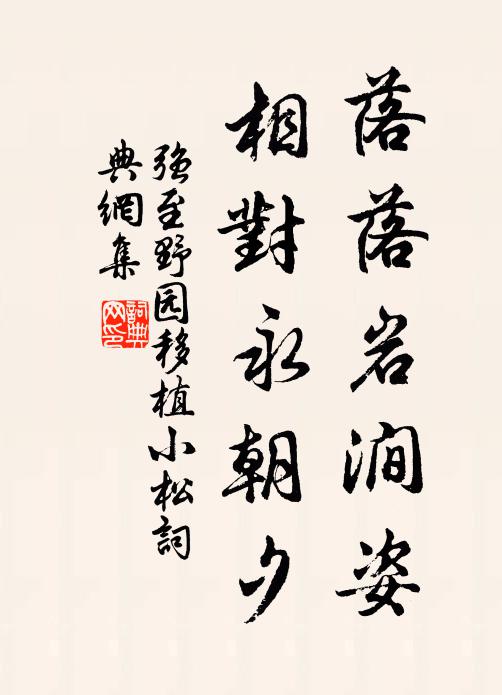 落落岩澗姿
相對永朝夕
强至野园移植小松詞
典網集
詞典
网印